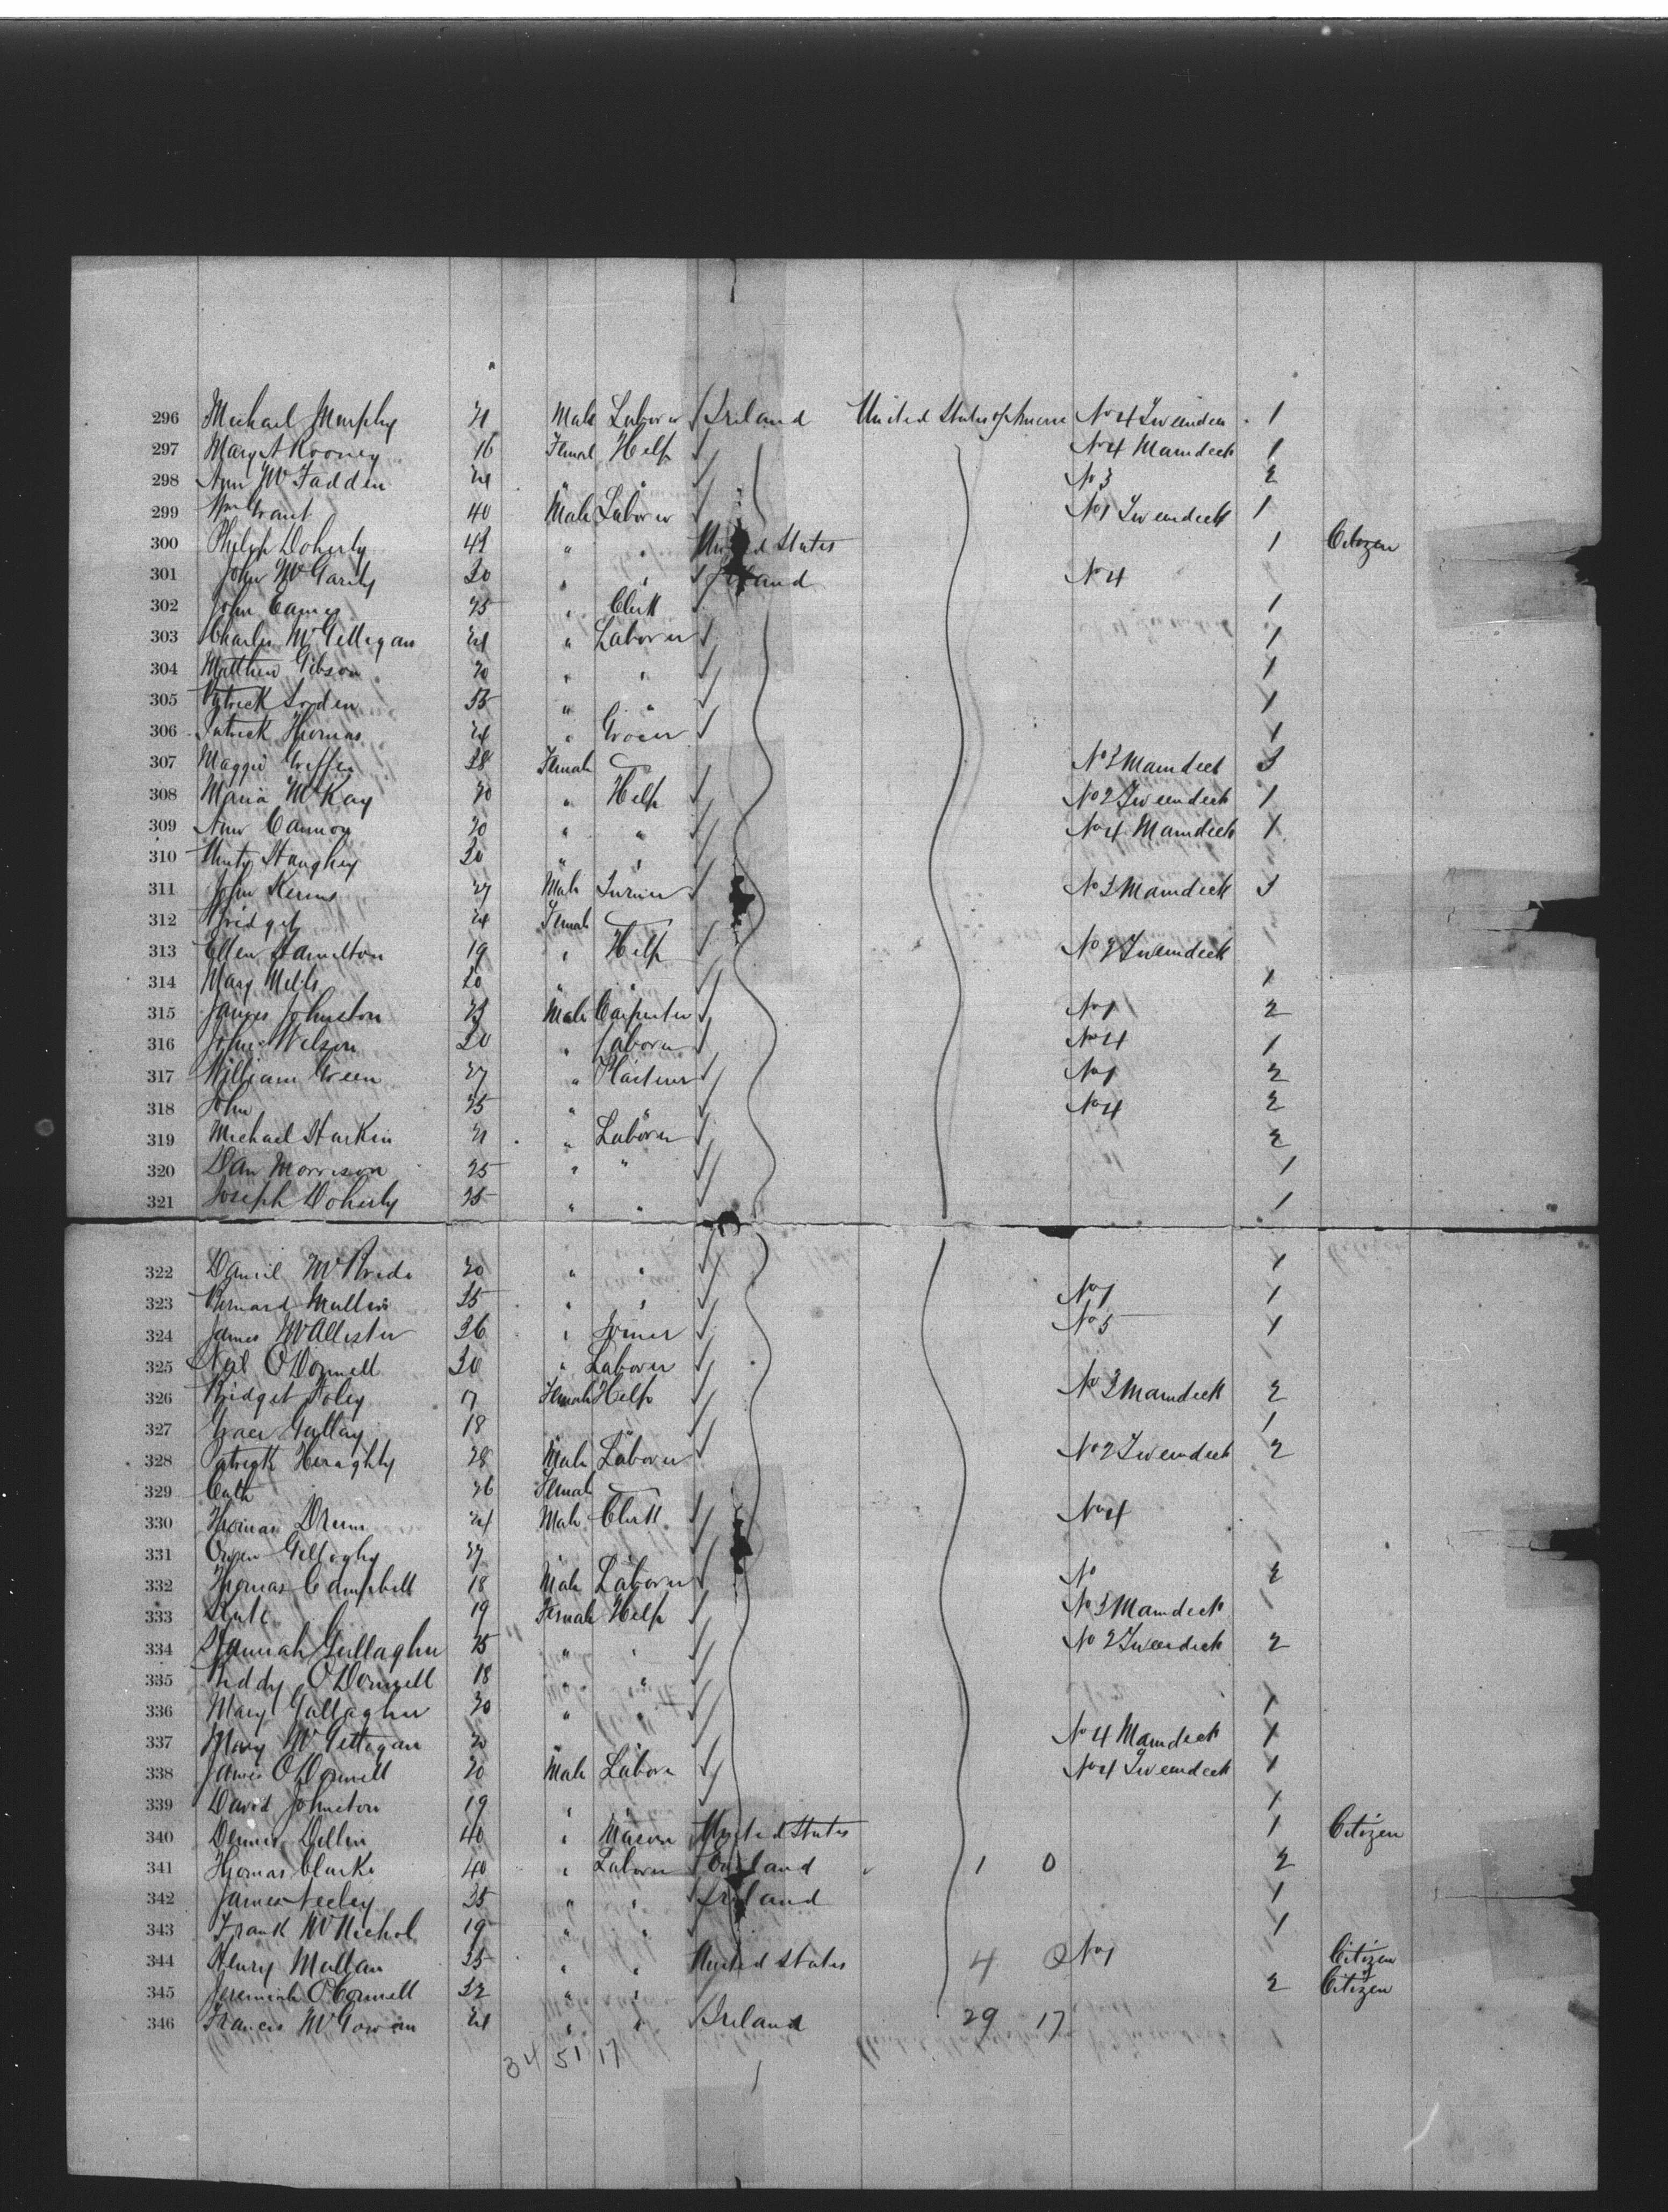 296 Michael Murphy 21 Male Laborer Ireland United States of America No 4 Tweendeck 1
297 Margt Rooney 16 Femal Help No 4 Maindeck 1
298 Ann McFadden 24 " " No 3 2
299 Wm Grant 40 Male Laborer No 1 Tweendeck 1
300 Philip Doherty 43 " " United States 1 Citizen
301 John McGarity 30 " " Ireland No 4
302 John 25 " Clerk 1
303 Charles McGettigan 24 " Laborer 1
304 Matthew Gibson 20 " " 1
305 Patrick 35 " " 1
306 Patrick Thomas 24 " Grocer 1
307 Maggie Griffin 28 Female No 3 Maindeck 3
308 Maria McKay 20 " Help No 2 Tweendeck 1
309 Ann Cannon 20 " " No 4 Maindeck 1
310 Unity 20 " "
311 John Kerins 27 Male No 3 Maindeck 3
312 Bridget 24 Female
313 Ellen Hamilton 19 " Help No 2 Tweendeck
314 Mary Mills 20 " " 1
315 James Johnston 23 Male Carpenter No 1 2
316 John Wilson 20 " Laborer No 4 1
317 William Green 27 " Plasterer No 1 2
318 John 25 " " No 4 2
319 Michael Harkin 21 " Laborer 2
320 Dan Morrison 25 " " 1
321 Joseph Doherty 25 " " 1
322 Daniel McBride 20 " " 1
323 Bernard Mullin 35 " " No 1 1
324 James McAllister 36 " Joiner No 5 1
325 Neil O'Donnell 30 " Laborer
326 Bridget Foley 17 Female Help No 3 Maindeck 2
327 Grace 18 " " 1
328 Patrick Heraghty 28 Male Laborer No 2 Tweendeck 2
329 Cath 26 Female
330 Thomas Drum 24 Male Clerk No 4
331 Owen 27 " "
332 Thomas Campbell 18 Male Laborer No 2
333 19 Female Help No 3 Maindeck
334 Hannah Gallagher 25 " " No 2 Tweendeck 2
335 Biddy O'Donnell 18 " "
336 Mary Gallagher 20 " " 1
337 Mary McGettigan 20 No 4 Maindeck 1
338 James O'Donnell 20 Male Laborer No 4 Tweendeck 1
339 David Johnston 19 " " 1
340 Dennis 40 " Mason United States 1 Citizen
341 Thomas Clarke 40 " Laborer England 1 0 2
342 James Neeley 25 " " Ireland 1
343 Frank McNichol 19 " " 1
344 Henry Mullan 35 " " United States 4 0 No 1 Citizen
345 Jeremiah O'Connell 32 " " 2 Citizen
346 Francis McGowan 24 " " Ireland 29 17
34 51 17